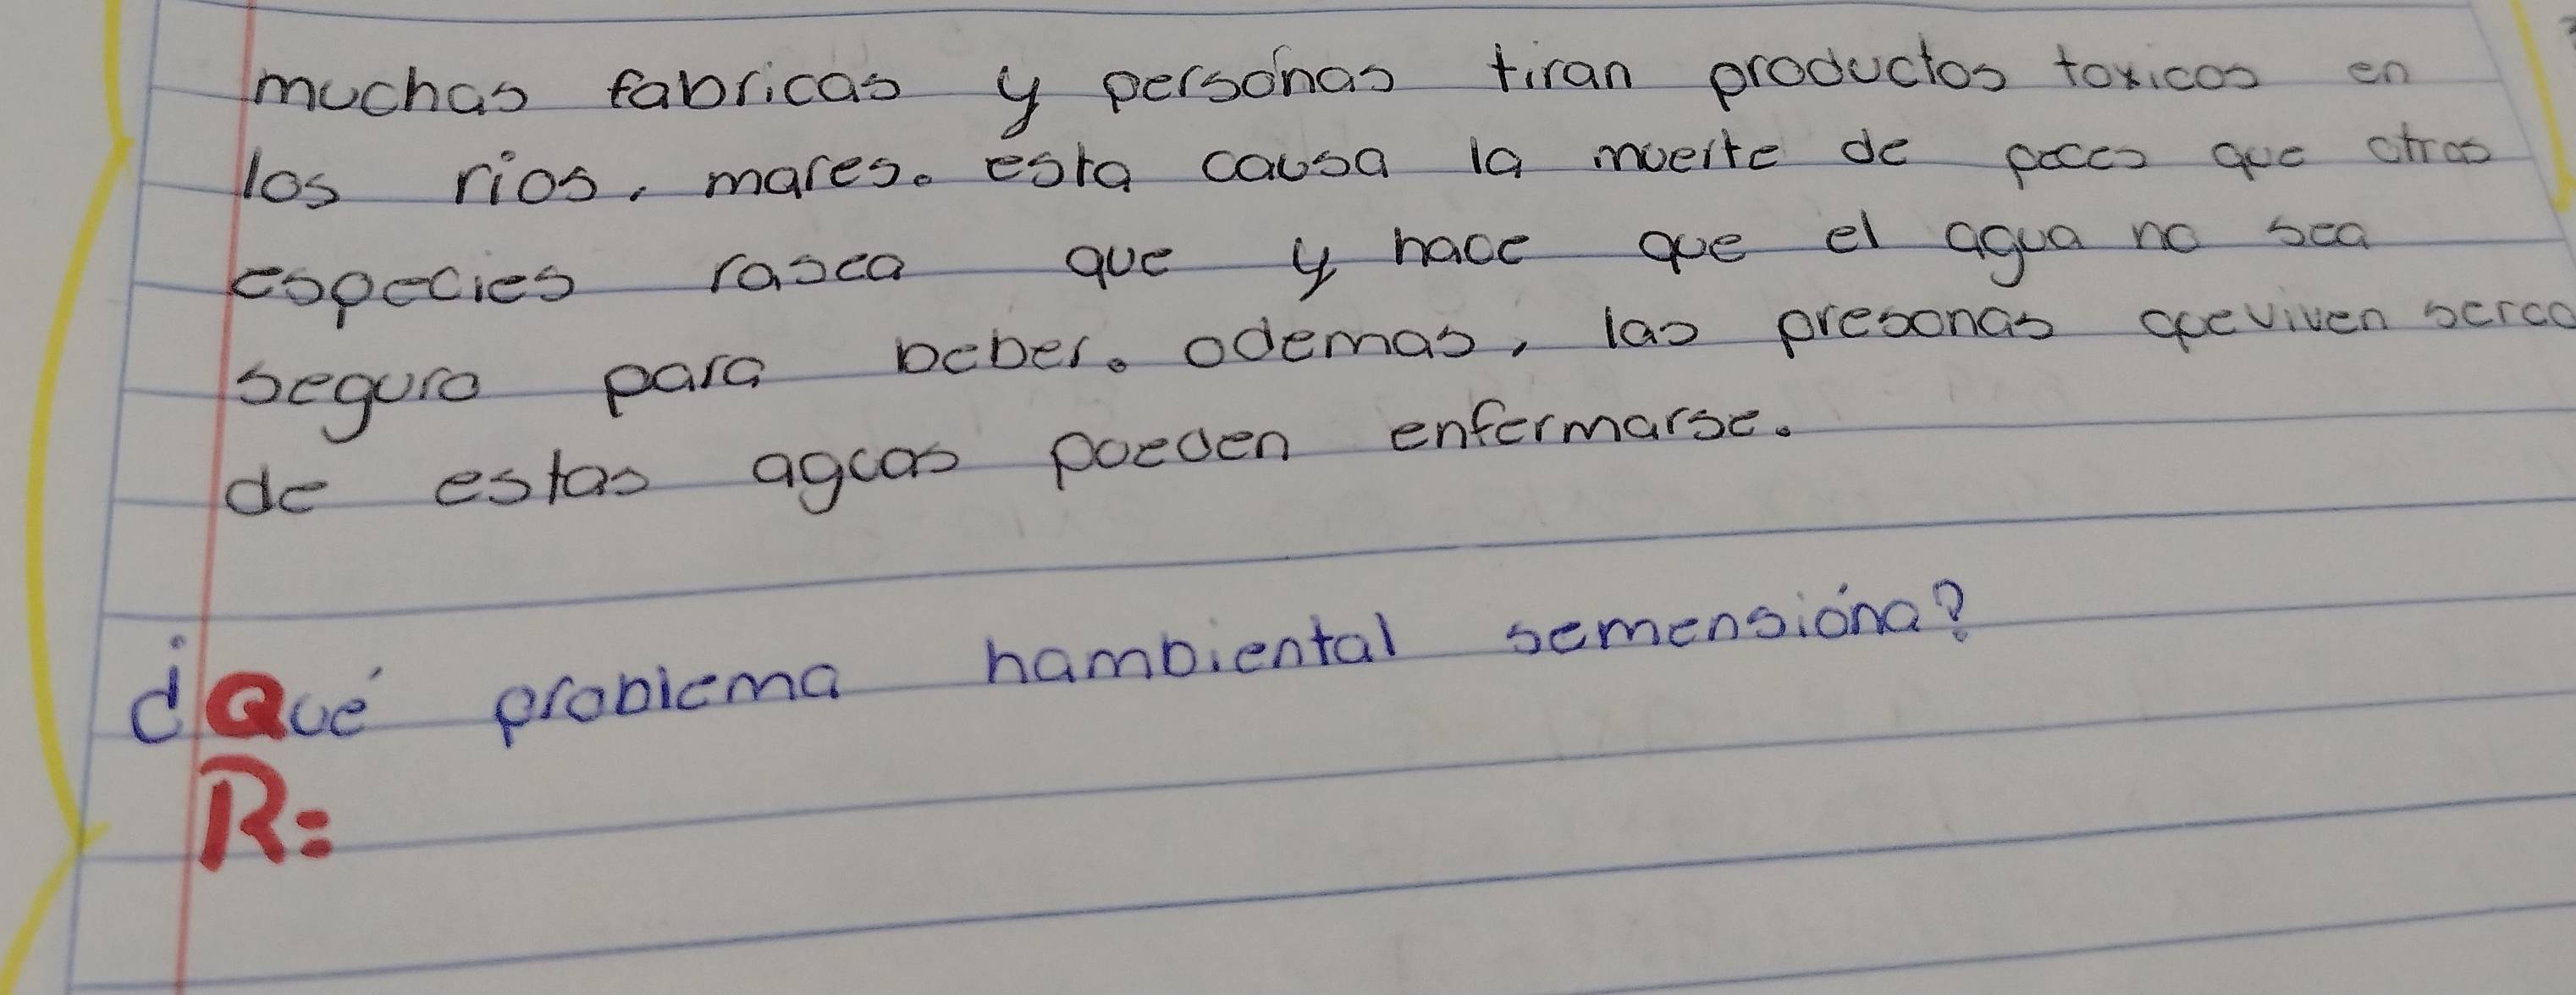 muchas fabricas y personas tiran productos toxicos en
los rios, mares. esta causa la muerte de peces que otras
especies rasca que y hace que el agua no sea
seguro para beber. odemas, las presonas que viven serca
de estas aguas pueden enfermarse.
¿Qué problema hambiental semensióna?
R: